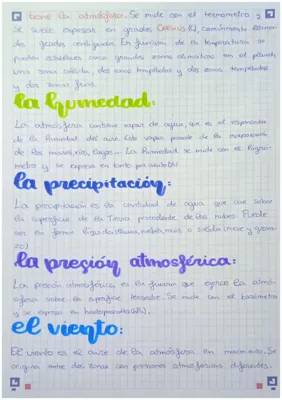 tiene la atmósfera. Se mide con el termómetro y
se suele expresar en grados Celsius (C), comúnmente
grados centígrados. En función de la temperatura se
pueden establecer cinco grandes zonas climáticas en el planeta,
una zona cálida, dos zonas templadas
y dos zonas frías.
la humedad:
La atmósfera contiene vapor de agua, que es el responsable
de la humedad del aire. Este vapor procede de la evaporación
de los mares, ríos, lagos... La humedad se mide con el higró-
metro y se expresa en tanto por ciento (%)
la precipitación:
La precipitación es la cantidad de agua que cae sobre
la superficie de la Tierra procedente de las nubes. Puede
ser en forma líquida (lluvia, o sólida (nieve y grani-
zo)
la presión atmosférica:
La presión atmosférica es la fuerza que ejerce la atmó-
sfera sobre la superficie terrestre. Se mide con el barómetro
y se expresa en
el viento:
El viento es el aire de la atmósfera en movimiento. Se
origina entre dos zonas con presiones atmosféricas diferentes.